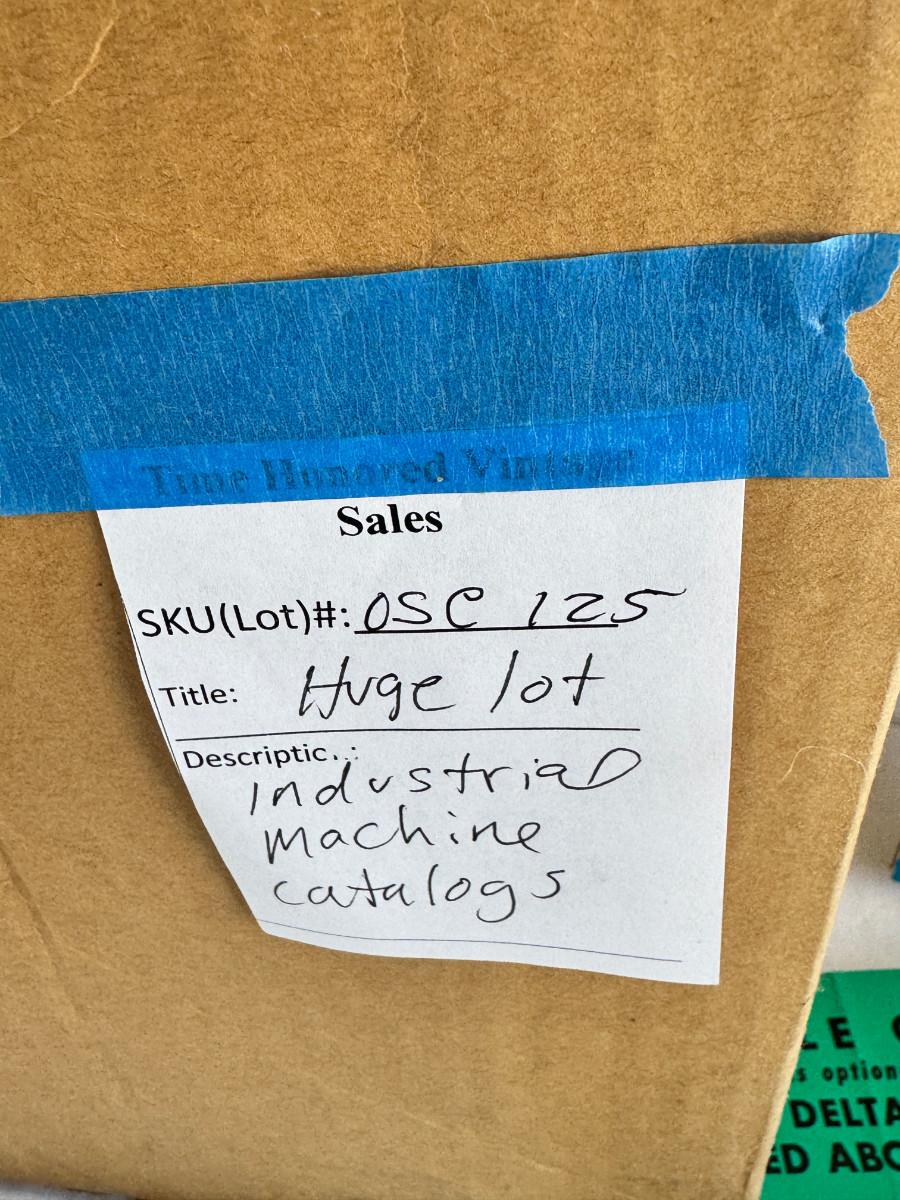 Time Honored Vintage
Sales
SKU(Lot)#: OSC 125
Title: Huge lot
Descriptio.:
Industrial
machine
catalogs
LE
s option
DELTA
ED ABO